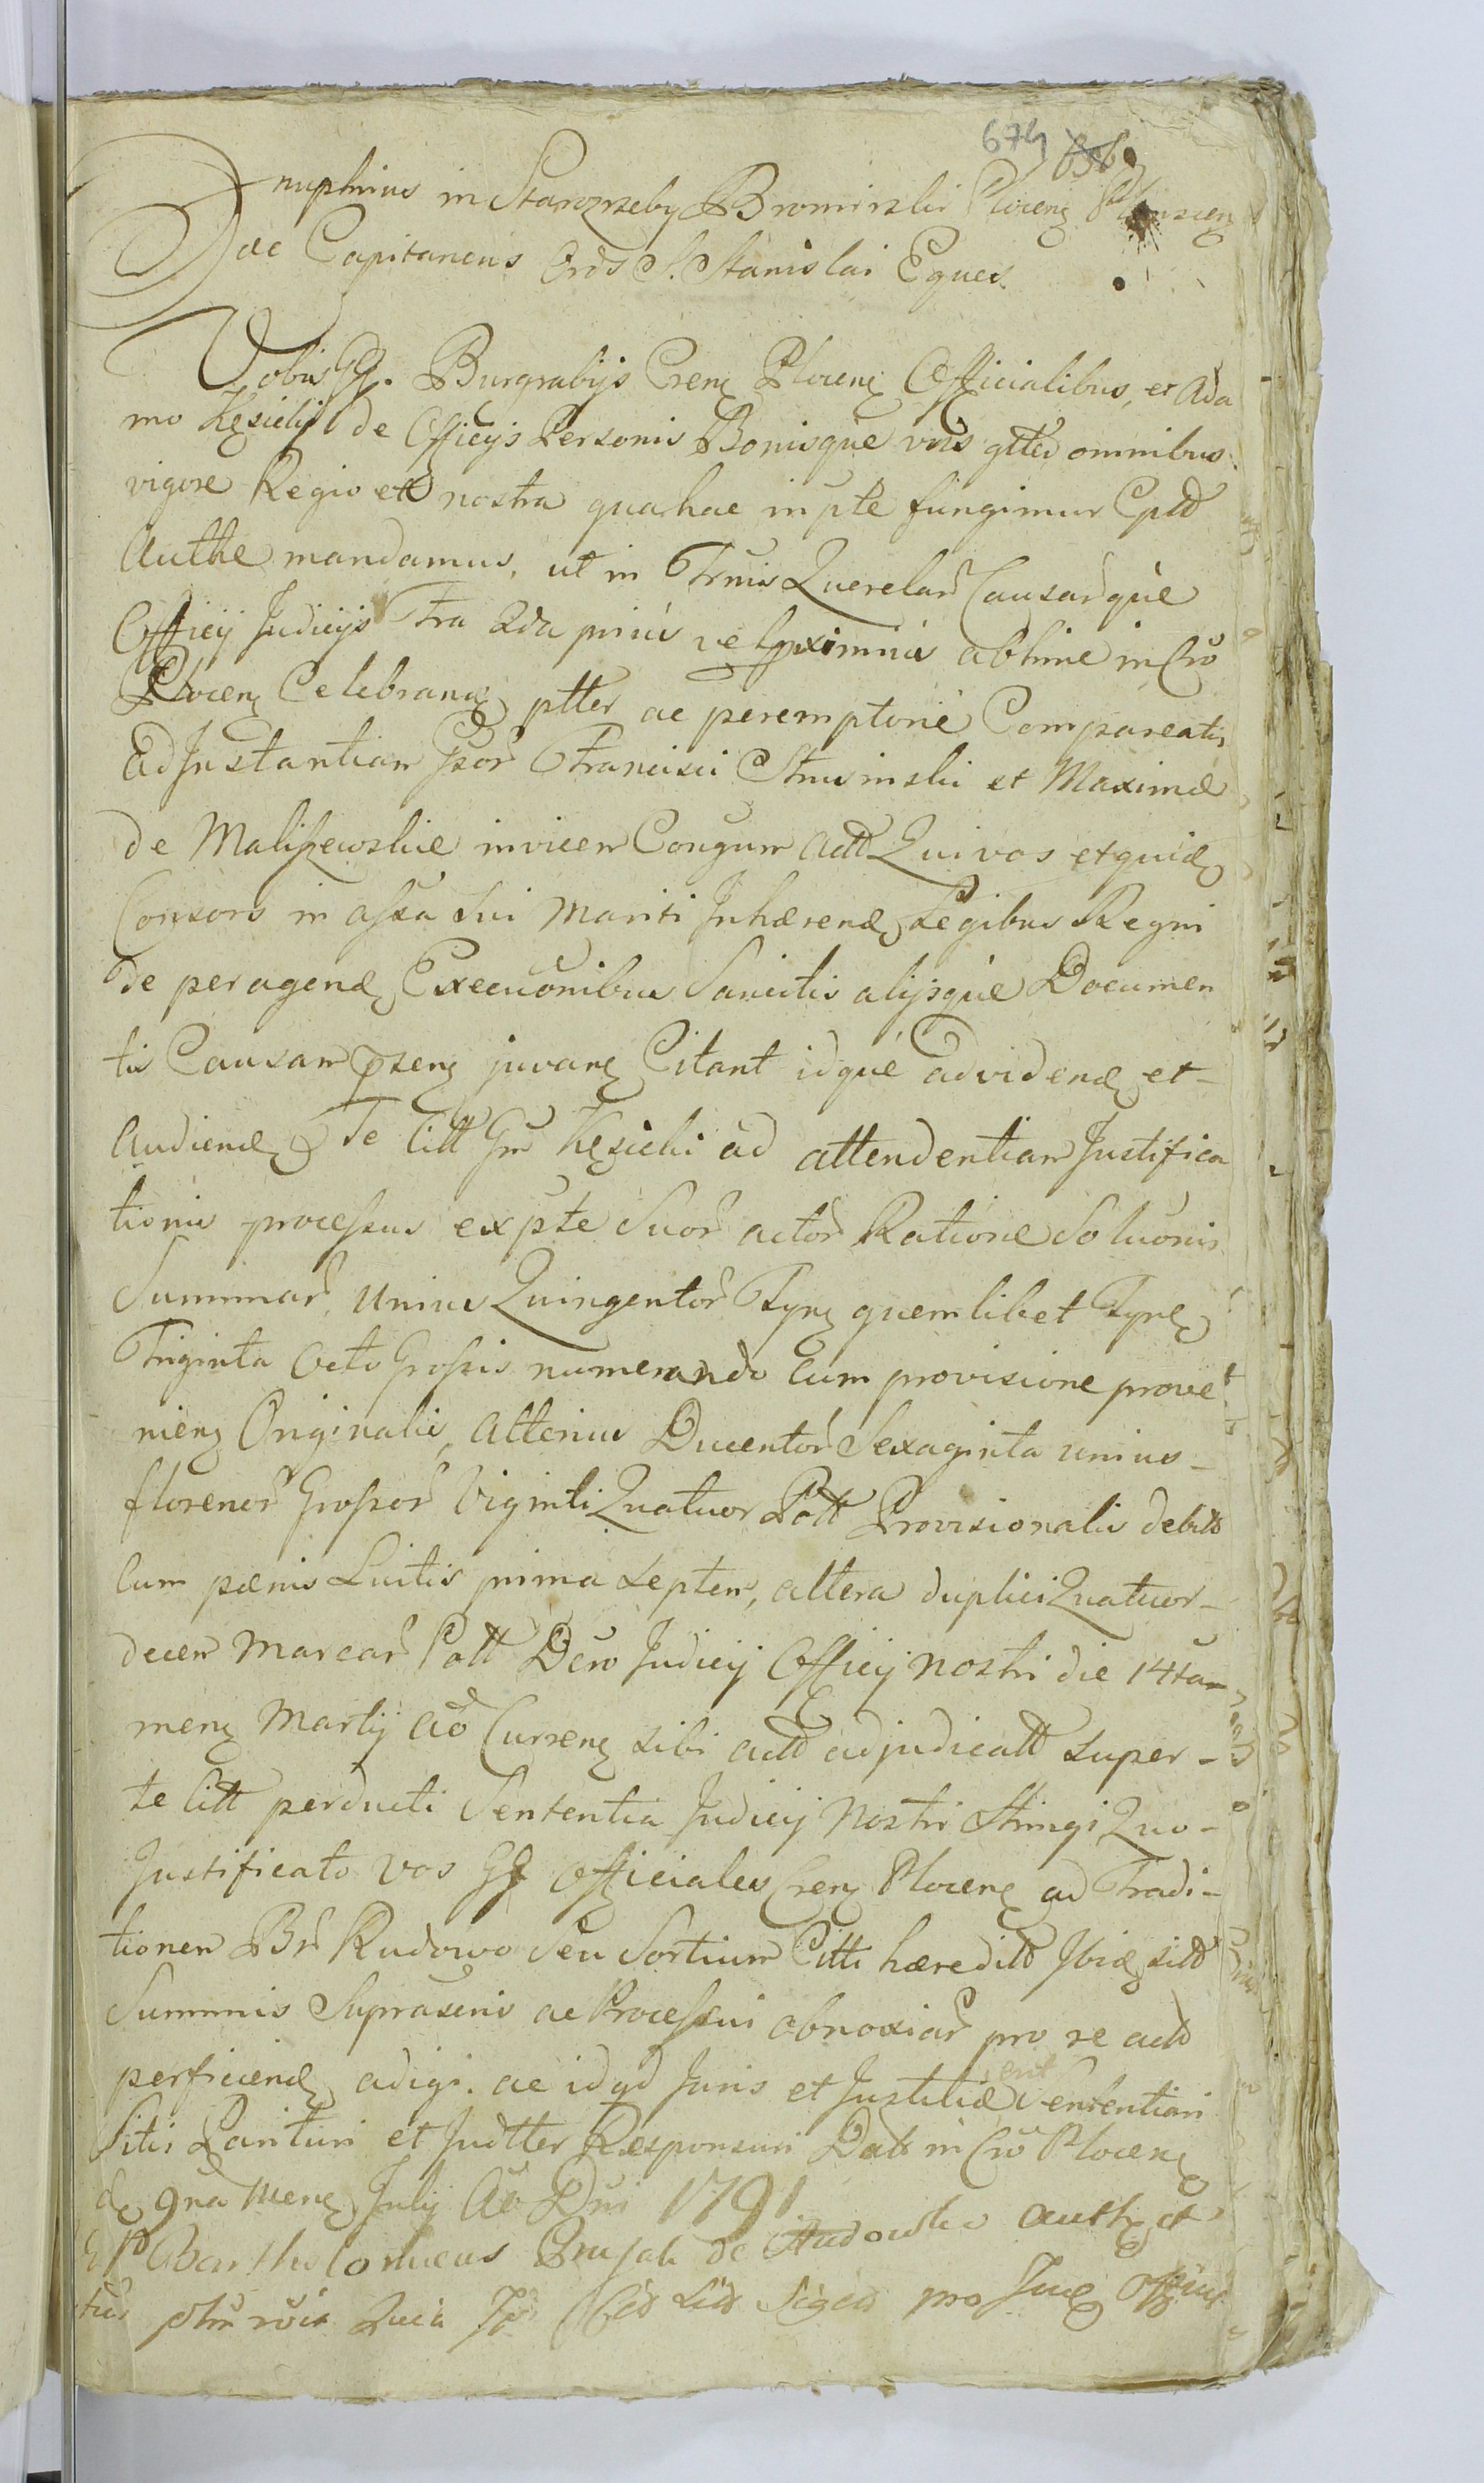 674
Onuphrius in Starozrzeby Bromirski Plocen
ac Capitaneus Ords S. Stanislai Eques.
Vobis GG. Burgrabijs Cren Plocen Officialibus, et Ada
mo Kęsicki de Officijs Personis Bonisque vris gtter omnibus.
vigore Regio et nostra qua hac in pte fungimur Cpld
Authe mandamus, ut in Trnis Querelar Causarque
Officij Judicijs Fra 2da prius vel pximius abhinc in Cro
Plocen Celebrand ptter ac peremptorie Compareatis
Ad Instantiam Gsor Francisci Strusinski et Maxima
de Maliszewskie invicem Congum Actt Qui vos et quid
Consors in assa Sui Mariti Inhærend Legibus Regni
de peragend Execuonibus Sancitis alijsque Documen
tis Causam psen juvan Citant idque ad vidend et
Audiend Te Citt Gm Kęsicki ad attendentiam Justifica
tionis processus ex pte Suor actor Ratione Soluonis
Summar, Unius Quingentor Tyn quemlibet Tyn
Triginta Octo Grossis numerando Cum provisione prove
nien Originalis, Alterius Ducentor Sexaginta unius
florenor Grossor Viginti Quatuor Poll Provisionalis debitt
Cum pænis Luitis prima Septem, altera duplici Quatuor
decem Marcar Poll Dcro Judicij Officij nostri die 14ta
mens Martij Ao Curren sibi actt adjudicatt super
te Citt perducti Sententia Judicij Nostri Stringi Quo
Justificato vos GG Officiales Cren Plocen ad Tradi
tionem Br Rudowo Seu Sortium Citti hæreditt Ibid sitt
Summis Suprascris ac Processui obnoxiar pro re actt
perficiend adigi. ac id qd Juris et Justitiæ
Sitis Parituri et Judtter Responsuri Datt in Cro Plocen
d 9na Mens Julij Ao Dni 1791
Bartholomeus Prusak de
pro